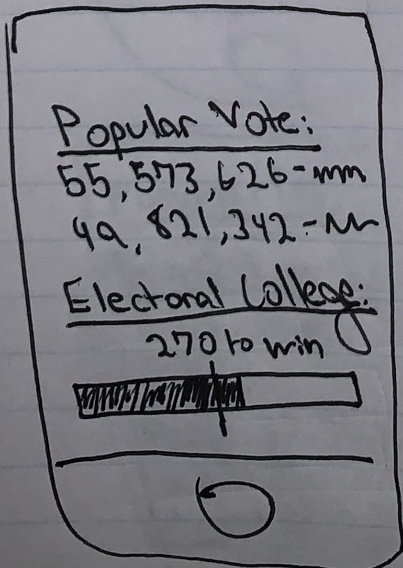 Popular Vote:
55,573,626-
49,821,342-
Electoral College:
270 to win